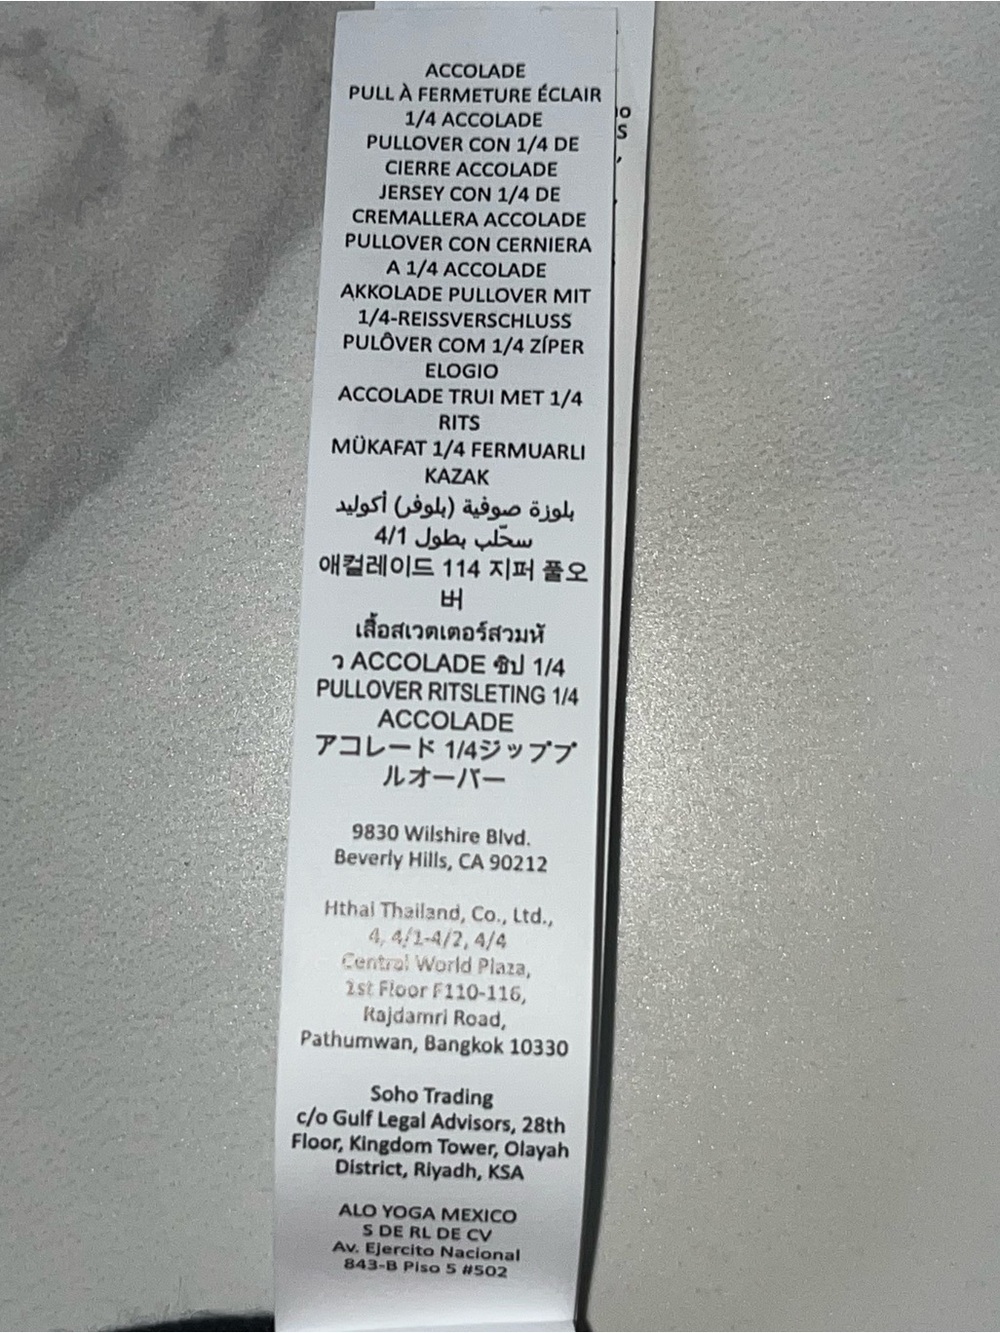 ACCOLADE
PULL À FERMETURE ÉCLAIR
1/4 ACCOLADE
PULLOVER CON 1/4 DE
CIERRE ACCOLADE
JERSEY CON 1/4 DE
CREMALLERA ACCOLADE
PULLOVER CON CERNIERA
A 1/4 ACCOLADE
AKKOLADE PULLOVER MIT
1/4-REISSVERSCHLUSS
PULÔVER COM 1/4 ZÍPER
ELOGIO
ACCOLADE TRUI MET 1/4
RITS
MÜKAFAT 1/4 FERMUARLI
KAZAK
بلوزة صوفية (بلوفر) أكوليد
سحّلب بطول 4/1
애컬레이드 114 지퍼 풀오
버
เสื้อสเวตเตอร์สวมหั
ว ACCOLADE ซิป 1/4
PULLOVER RITSLETING 1/4
ACCOLADE
アコレード 1/4ジッププ
ルオーバー
9830 Wilshire Blvd.
Beverly Hills, CA 90212
Hthai Thailand, Co., Ltd.,
4, 4/1-4/2, 4/4
Central World Plaza,
1st Floor F110-116,
Rajdamri Road,
Pathumwan, Bangkok 10330
Soho Trading
c/o Gulf Legal Advisors, 28th
Floor, Kingdom Tower, Olayah
District, Riyadh, KSA
ALO YOGA MEXICO
S DE RL DE CV
Av. Ejercito Nacional
843-B Piso 5 #502